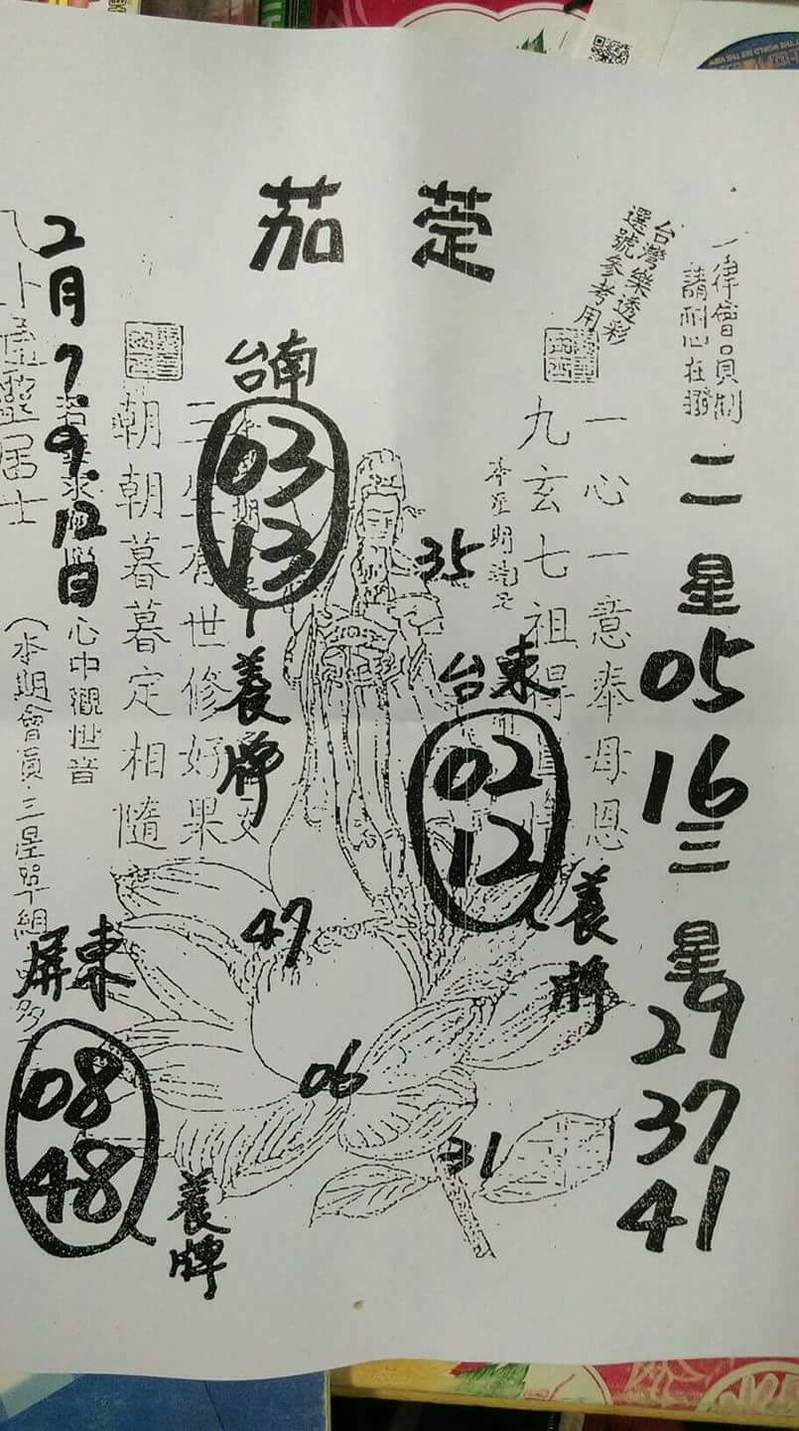 茄萣
台灣樂透彩
選號參考用
一律會員制
請耐心在撥
二星
05
16
三星
29
37
41
一心一意奉母恩
九玄七祖得
35
台東
02
12
養牌
台南
03
13
養牌
三生有世修好果
朝朝暮暮定相隨
2月7.9.12日
心中觀世音
居士
(本期會員三星單組
47
06
31
屏東
08
48
養牌